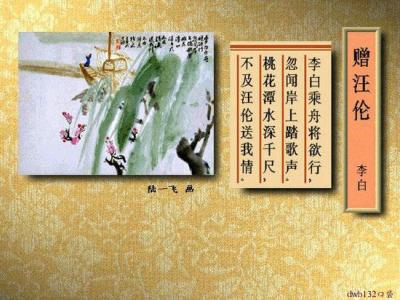 赠汪伦
李白
李白乘舟将欲行，
忽闻岸上踏歌声。
桃花潭水深千尺，
不及汪伦送我情。
陆一飞 画
dwb132口袋